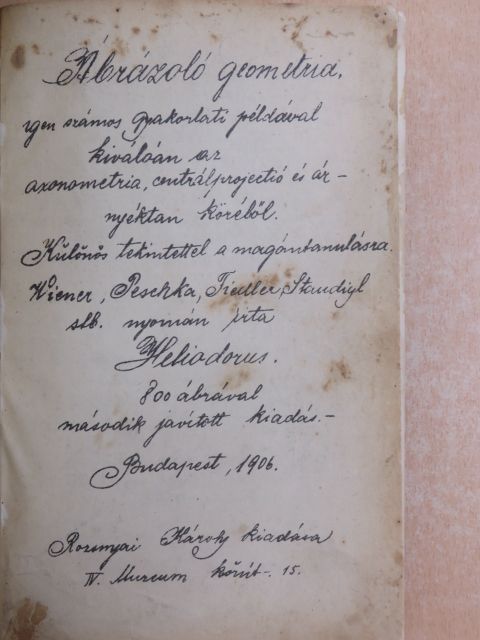 Ábrázoló geometria,
igen számos gyakorlati példával
kiválóan az
axonometria, centrálprojectió és ár-
nyéktan köréből.
Különös tekintettel a magántanulásra.
Wiener, Peschka, Fiedler, Staudigl
stb. nyomán írta
Heliodorus.
800 ábrával
második javított kiadás.-
Budapest, 1906.
Rozsnyai Károly kiadása
IV. Muzeum körút-. 15.